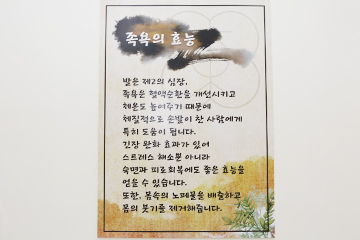 족욕의 효능
발은 제2의 심장,
족욕은 혈액순환을 개선시키고
체온도 높여주기 때문에
체질적으로 손발이 찬 사람에게
특히 도움이 됩니다.
긴장 완화 효과가 있어
스트레스 해소뿐 아니라
숙면과 피로회복에도 좋은 효능을
얻을 수 있습니다.
또한, 몸속의 노폐물을 배출하고
몸의 붓기를 제거해줍니다.